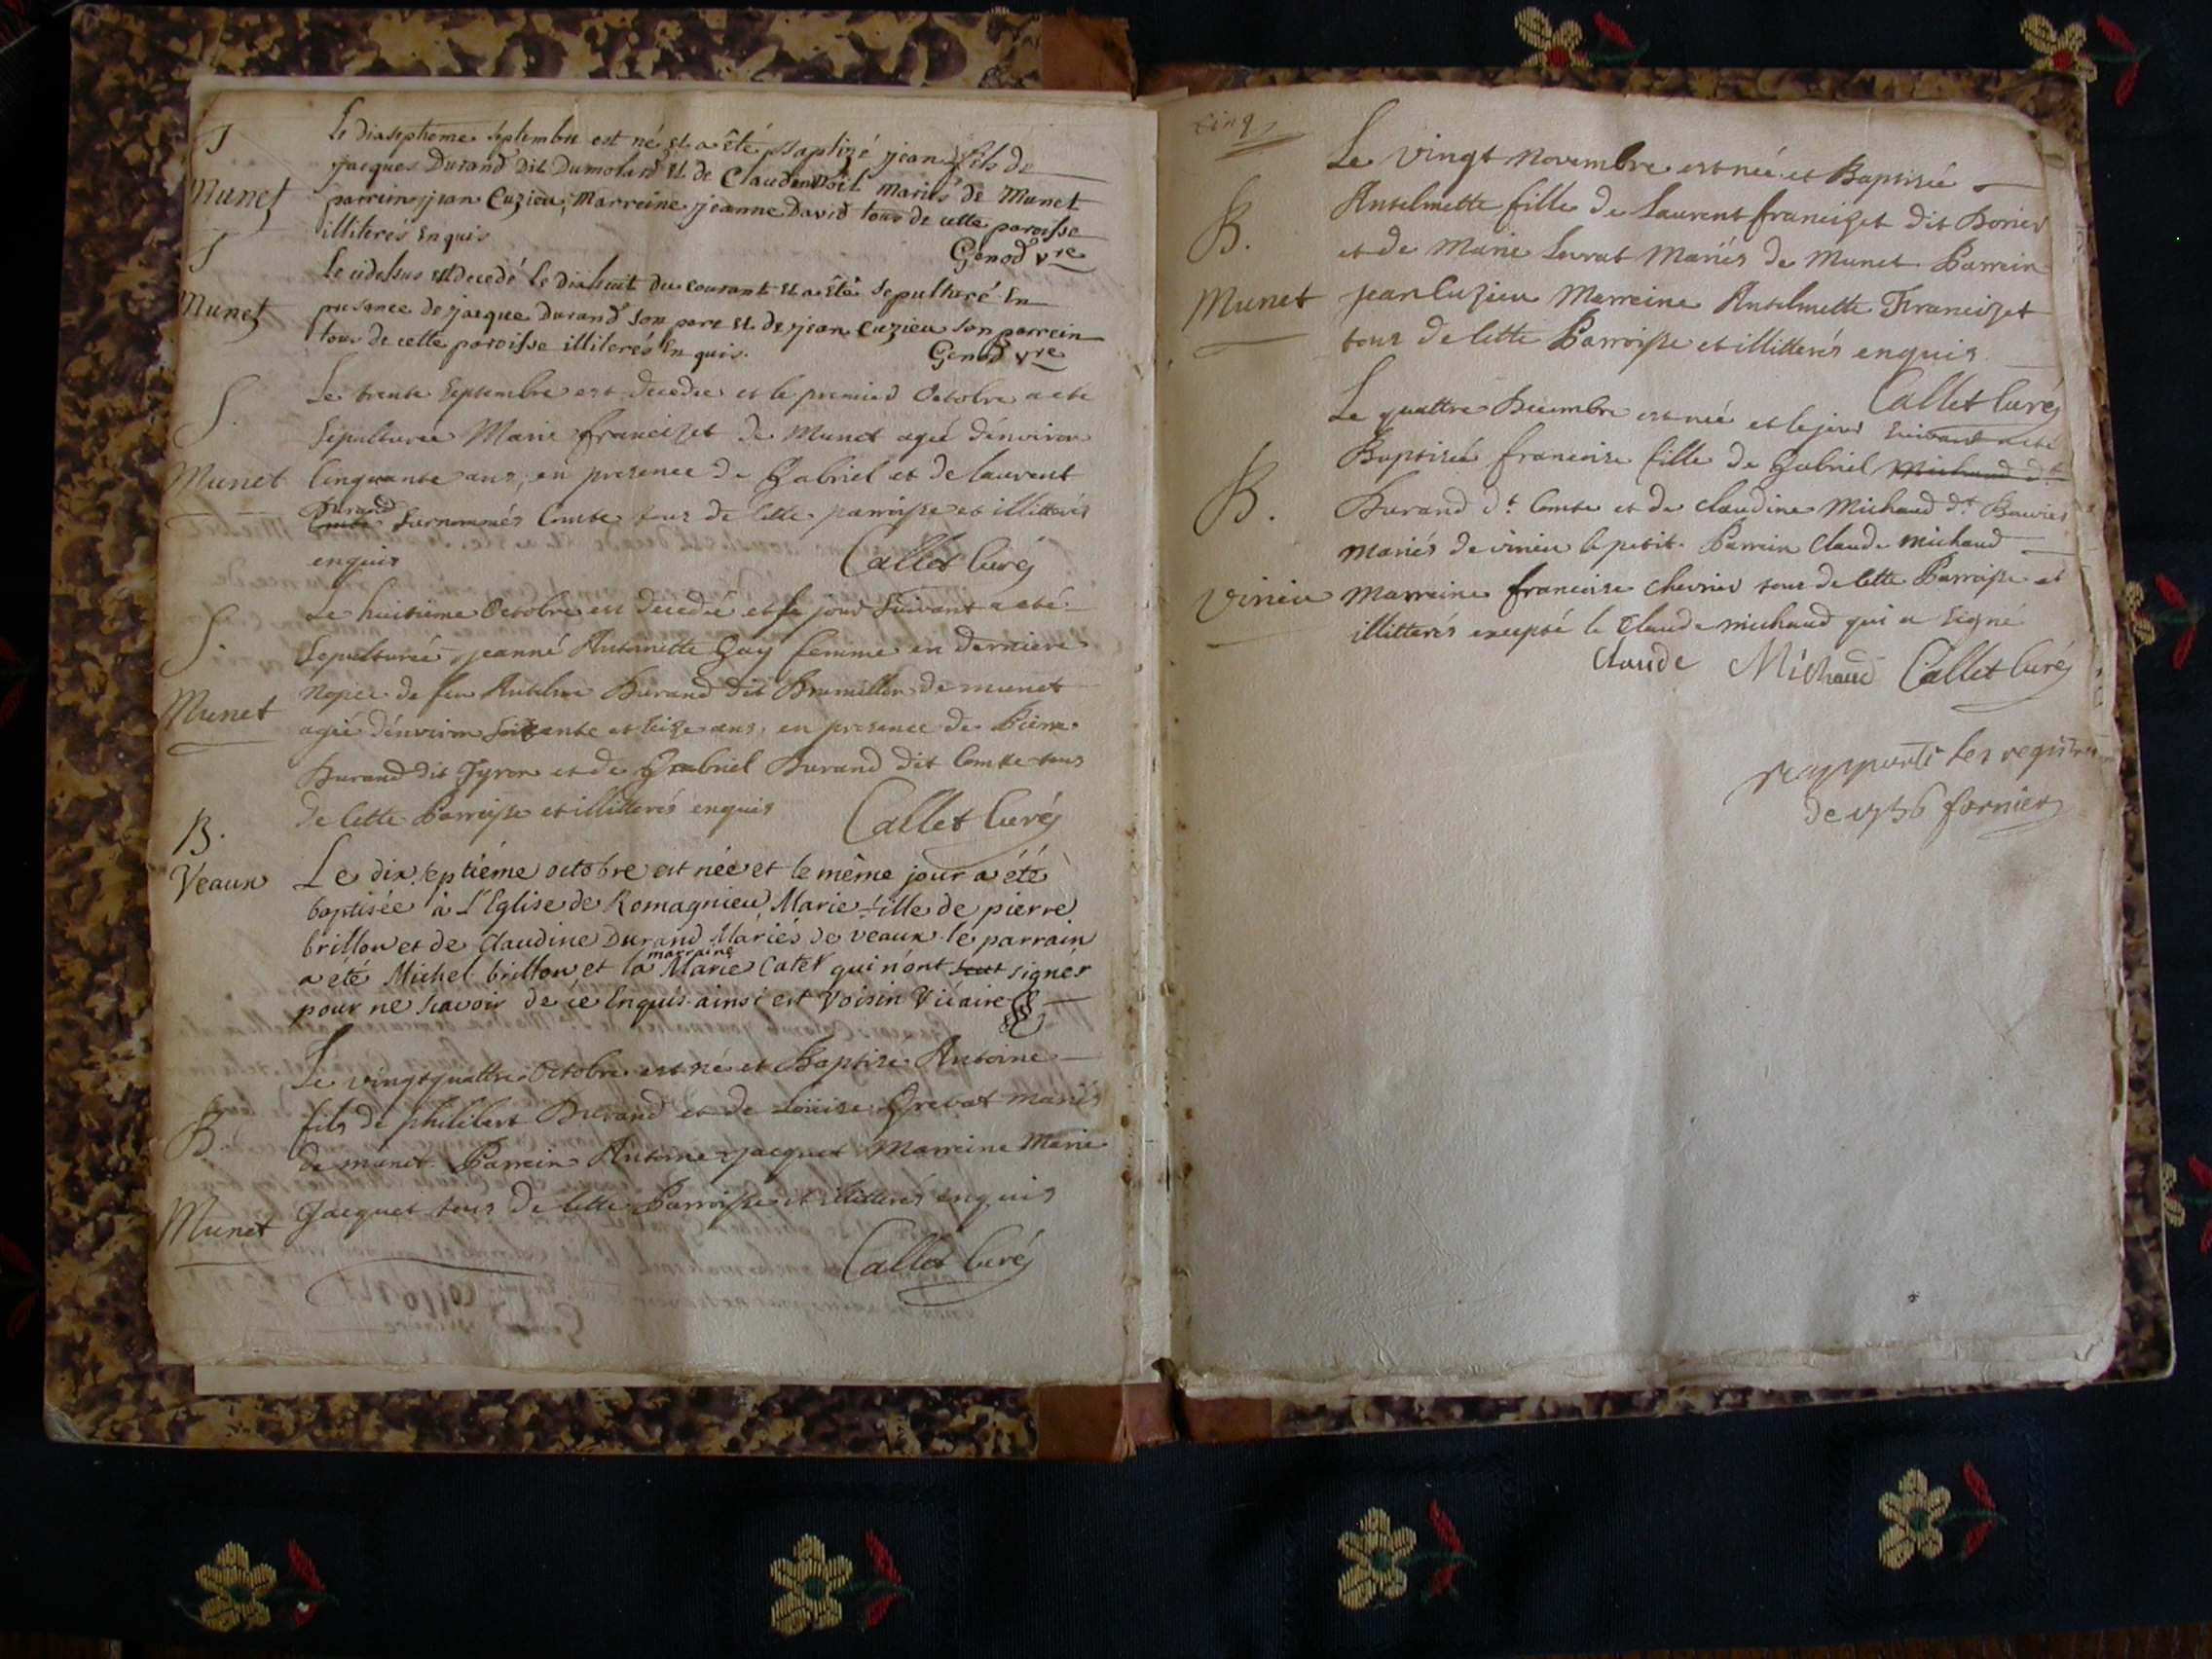 J
Le dixseptieme septembre est né et a êté Baptizé jean fils de
jacques Durand dit Dumolard et de Claudine
Munet
mariés de Munet
parrein jean Cuzieu, Marreine jeanne David tous de cette paroisse
illiterés Enquis
Genod vre
J
Munet
Le cidessus est decedé le dixhuit du courant et a êté sepulturé En
presance de jacque Durand son pere et de jean Cuzieu son parrein
tous de cette paroisse illiterés Enquis.
Genod vre
S.
Munet
Le trente Septembre est decedée et le premier Octobre a eté
sepulturée Marie francizet de Munet agée d'environ
Cinquante ans, en presence de Gabriel et de laurent
Durand
surnommés Comte tous de cette parroisse et illitterés
enquis
Callet Curé
S.
Munet
Le huitieme Octobre est decedée et le jour suivant a eté
Sepulturée jeanne Antoinette Guy femme en derniere
nopce de feu Anselme Durand dit Brumillon de munet
agée d'environ soixante et seize ans, en presence de Pierre
Durand dit Tyron et de Gabriel Durand dit Comte tous
de cette Parroisse et illitterés enquis
Callet Curé
B.
Veaux
Le dix septiéme octobre est née et le même jour a été
baptisée à L'Eglise de Romagnieu Marie fille de pierre
brillon et de Claudine Durand Mariés de veaux le parrain
marraine
a été Michel brillon et la Marie Catet qui n'ont sçut signér
pour ne scavoir de ce Enquis ainsi est Voisin Vicaire
B.
Munet
Le vingtquattre Octobre est né et Baptisé Antoine
fils de philibert Durand et de Loüise Grevat mariés
de munet. Parrein Antoine jacquet Marreine Marie
Jacquet tous de cette Parroisse et illitterés enquis
Callet Curé
Cinq
B.
Munet
Le vingt Novembre est née et Baptisée
Antelmette fille de Laurent francizet dit Borier
et de Marie Levrat Mariés de Munet. Parrein
jean Cuzieu Marreine Antelmette Francizet
tous de cette Parroisse et illitterés enquis
Callet Curé
B.
Vinieu
Le quattre Decembre est née et le jour suivant a eté
Baptisée francoise fille de Gabriel Michaud dt
Durand dt Comte et de claudine Michaud dt
mariés de vinieu le petit. Parrein Claude michaud
Marreine francoise chevrier tous de cette Parroisse et
illitterés excepté le Claude michaud qui a signé
Claude Michaud Callet Curé
rapporté les registres
de 1756 fornier